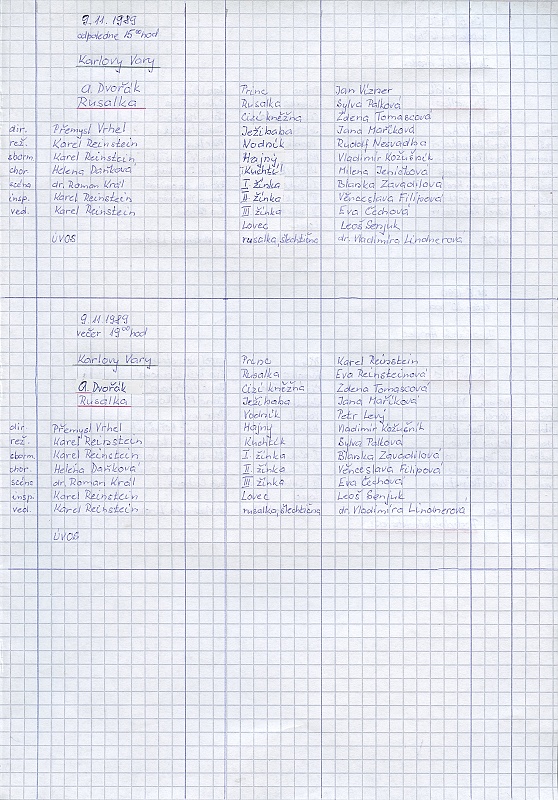 9.11.1989
odpoledne 15⁰⁰ hod
Karlovy Vary
A. Dvořák Princ Jan Vizner
Rusalka Rusalka Sylva Pálková
Cizí kněžna Zdena Tomascová
dir. Přemysl Vrhel Ježibaba Jana Maříková
rež. Karel Reinstein Vodník Rudolf Nesvadba
sborm. Karel Reinstein Hajný Vladimír Kožušník
chor. Helena Daňková Kuchtík Milena Jeníčková
scéna dr. Roman Král I žínka Blanka Zavadilová
insp. Karel Reinstein II žínka Věnceslava Filipová
ved. Karel Reinstein III žínka Eva Čechová
Lovec Leoš Senjuk
ÚVOS rusalka, šlechtična dr. Vladimíra Lindnerova
9.11.1989
večer 19⁰⁰ hod
Karlovy Vary Princ Karel Reinstein
Rusalka Eva Reinsteinová
A. Dvořák Cizí kněžna Zdena Tomascová
Rusalka Ježibaba Jana Maříková
Vodník Petr Levý
dir Přemysl Vrhel Hajný Vladimír Kožušník
rež. Karel Reinstein Kuchtík Sylva Pálková
sborm. Karel Reinstein I žínka Blanka Zavadilová
chor. Helena Daňková II žínka Věnceslava Filipová
scéna dr. Roman Král III žínka Eva Čechová
insp. Karel Reinstein Lovec Leoš Senjuk
ved. Karel Reinstein rusalka, šlechtična dr. Vladimíra Lindnerova
ÚVOS